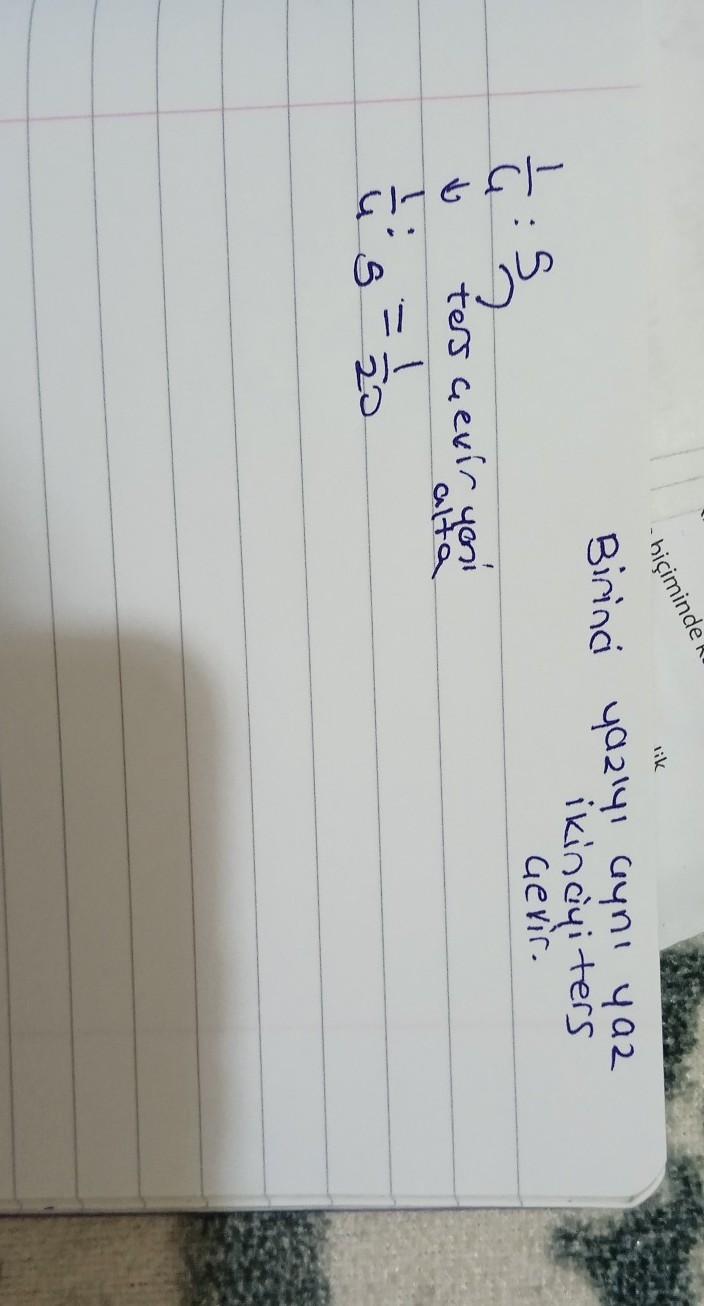 Birinci yazıyı aynı yaz
ikinciyi ters
çevir.
1/4 : 5
↓ ters çevir yani
alta
1/4 : 5 = 1/20
biçiminde
lik